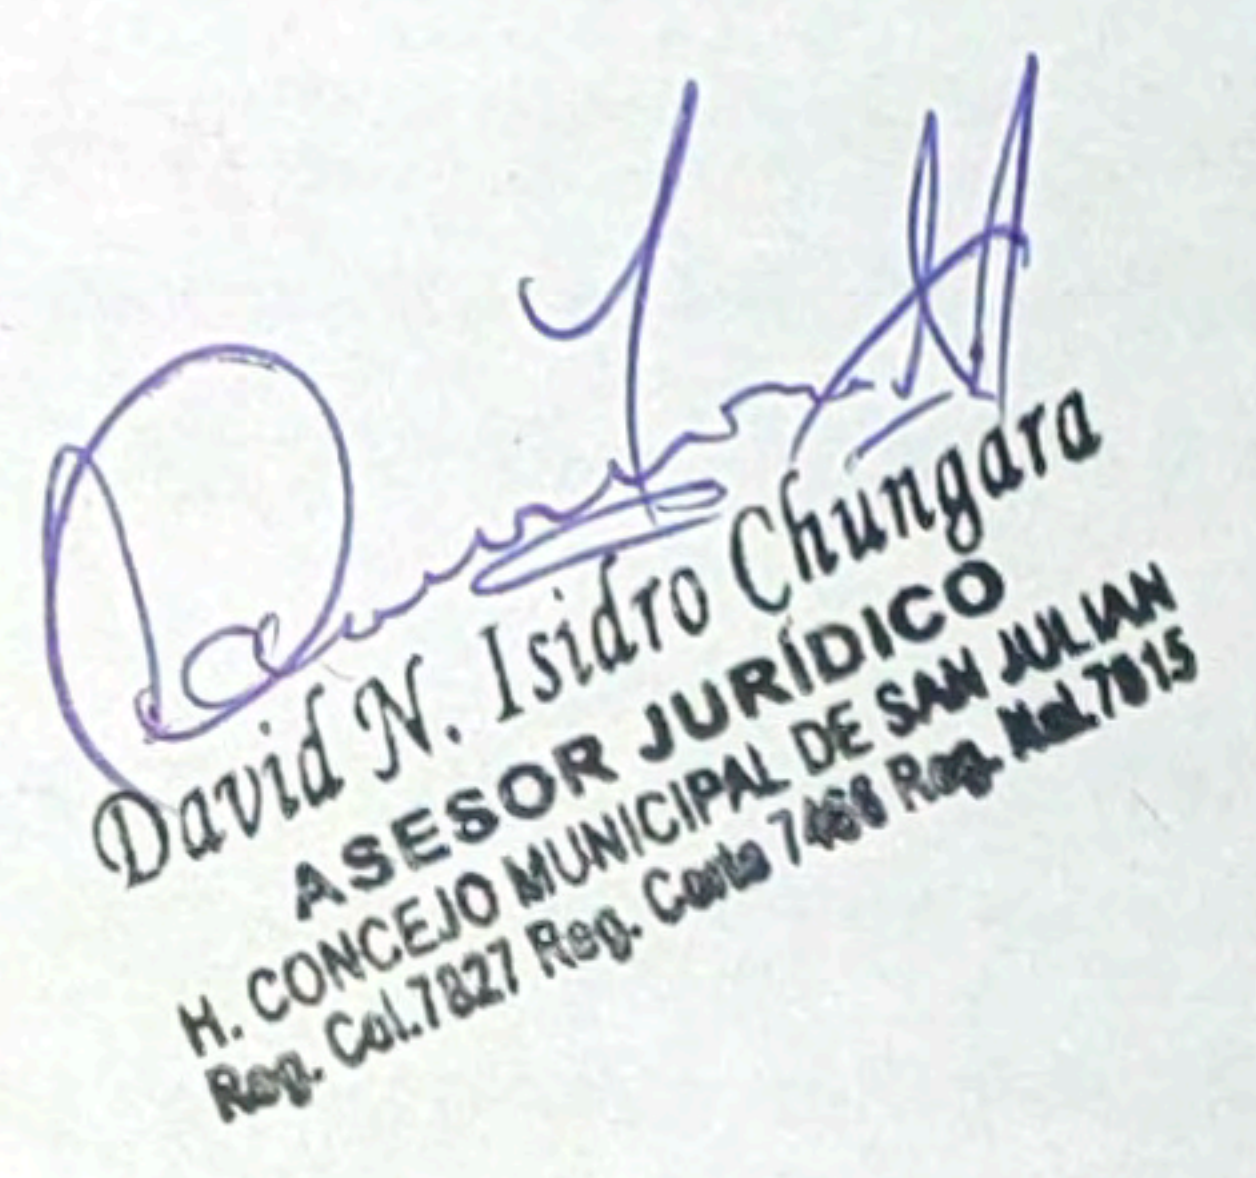 David N. Isidro Chungara
ASESOR JURÍDICO
H. CONCEJO MUNICIPAL DE SAN JULIAN
Reg. Col.7827 Reg. Corte 7468 Reg. Nal.7815